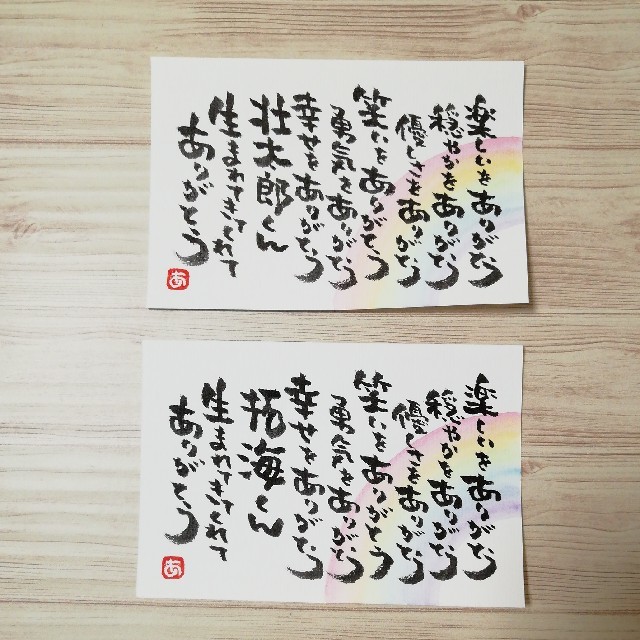 楽しいをありがとう
穏やかをありがとう
優しさをありがとう
笑いをありがとう
勇気をありがとう
幸せをありがとう
壮太郎くん
生まれてきてくれて
ありがとう
あ
楽しいをありがとう
穏やかをありがとう
優しさをありがとう
笑いをありがとう
勇気をありがとう
幸せをありがとう
拓海くん
生まれてきてくれて
ありがとう
あ